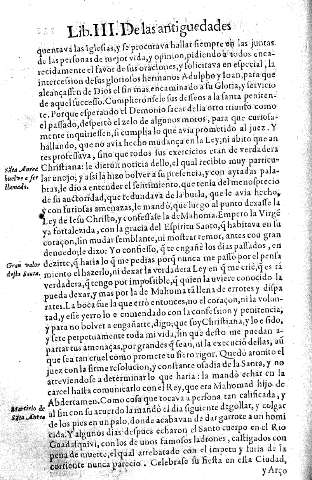 Lib. III. De las antiguedades
quentava las Iglesias, y se procurava hallar siempre en las juntas
de las personas de mejor vida, y opinion, pidiendo à todos enca-
recidamente el favor de sus oraciones, y solicitava en especial, la
intercession de sus gloriosos hermanos Adulpho y Ioan, para que
alcançassen de Dios el fin mas encaminado a su Gloria, y servicio
de aquel successo. Cumplieronsele sus desseos a la santa peniten-
te. Porque esperando el Demonio sacar della otro triumfo como
el passado, despertò el zelo de algunos moros, para que curiosa-
mente inquiriessen, si cumplia lo que avia prometido al juez. Y
hallando, que no avia hecho mudança en la Ley, ni abito que an-
tes professava, sino que todos sus exercicios eran de verdadera
Christiana: le dieron noticia dello, el qual recibio muy particu-
lar enojo, y assi la hizo bolver a su presencia, y con ayradas pala-
bras, le dio a entender el sentimiento, que tenia del menosprecio
de su auctoridad, que redundava de la burla, que le avia hecho,
y con furiosas amenazas, le mandò, que luego al punto dexasse la
Ley de Iesu Christo, y confessasse la de Mahoma. Empero la Virgē
ya fortalezida, con la gracia del Espiritu Santo, q̃ habitava en su
coraçon, sin mudar semblante, ni mostrar temor, antes con gran
denuedo, le dixo: Yo confiesso, q̃ te engañè los dias passados, en
dezirte, q̃ haria lo q̃ me pedias: porq̃ nunca me passò por el pensa-
miento el hazerlo, ni dexar la verdadera Ley en q̃ me crie, q̃ es tā
verdadera, q̃ tengo por impossible, q̃ quien la uviere conocido la
pueda dexar, y mas por la de Mahoma tā llena de errores y dispa
rates. La boca fue la que errò entonces, no el coraçon, ni la volun-
tad, y esse yerro lo e enmendado con la confession y penitencia,
y para no bolver a engañarte, digo, que soy Christiana, y lo e sido,
y serè perpetuamente toda mi vida, sin que desto me puedan a-
partar tus amenaças, por grandes q̃ sean, ni la execucion dellas, aū
que sea tan cruel como promete tu fiero rigor. Quedò atonito el
juez con la firme resolucion, y constante osadia de la Santa, y no
atreviendose a determinar lo que haria: la mandò echar en la
carcel hasta comunicarlo con el Rey, que era Mahomad hijo de
Abderramen. Como cosa que tocava a persona tan calificada, y
al fin con su acuerdo la mandò el dia siguiente degollar, y colgar
de los pies en un palo, donde acabavan de dar garrote a un homi
cida. Y algunos dias despues echaron el Santo cuerpo en el Rio
Guadalquivi, con los de unos famosos ladrones, castigados con
pena de muerte, el qual arrebatado con el impetu y furia de la
corriente nunca parecio. Celebrase su fiesta en esta Ciudad,
y Arço
Sāta Aurea
buelve a ser
llamada.
Gran valor
desta Santa.
Martirio de
Sāta Aurea